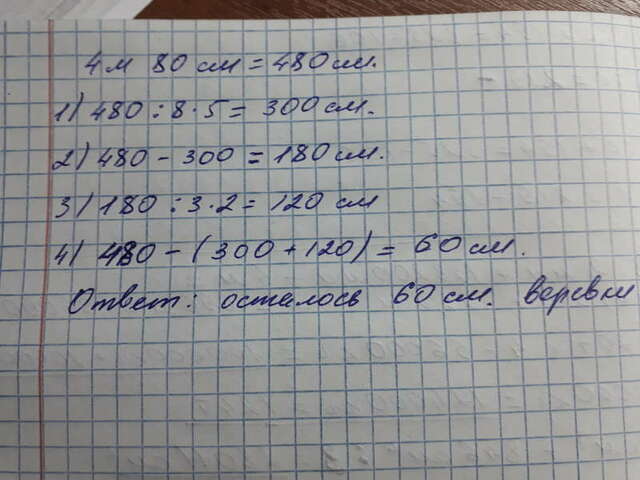 4м 80 см = 480 см.
1) 480 : 8 · 5 = 300 см.
2) 480 - 300 = 180 см.
3) 180 : 3 · 2 = 120 см
4) 480 - (300 + 120) = 60 см.
Ответ: осталось 60 см. веревки